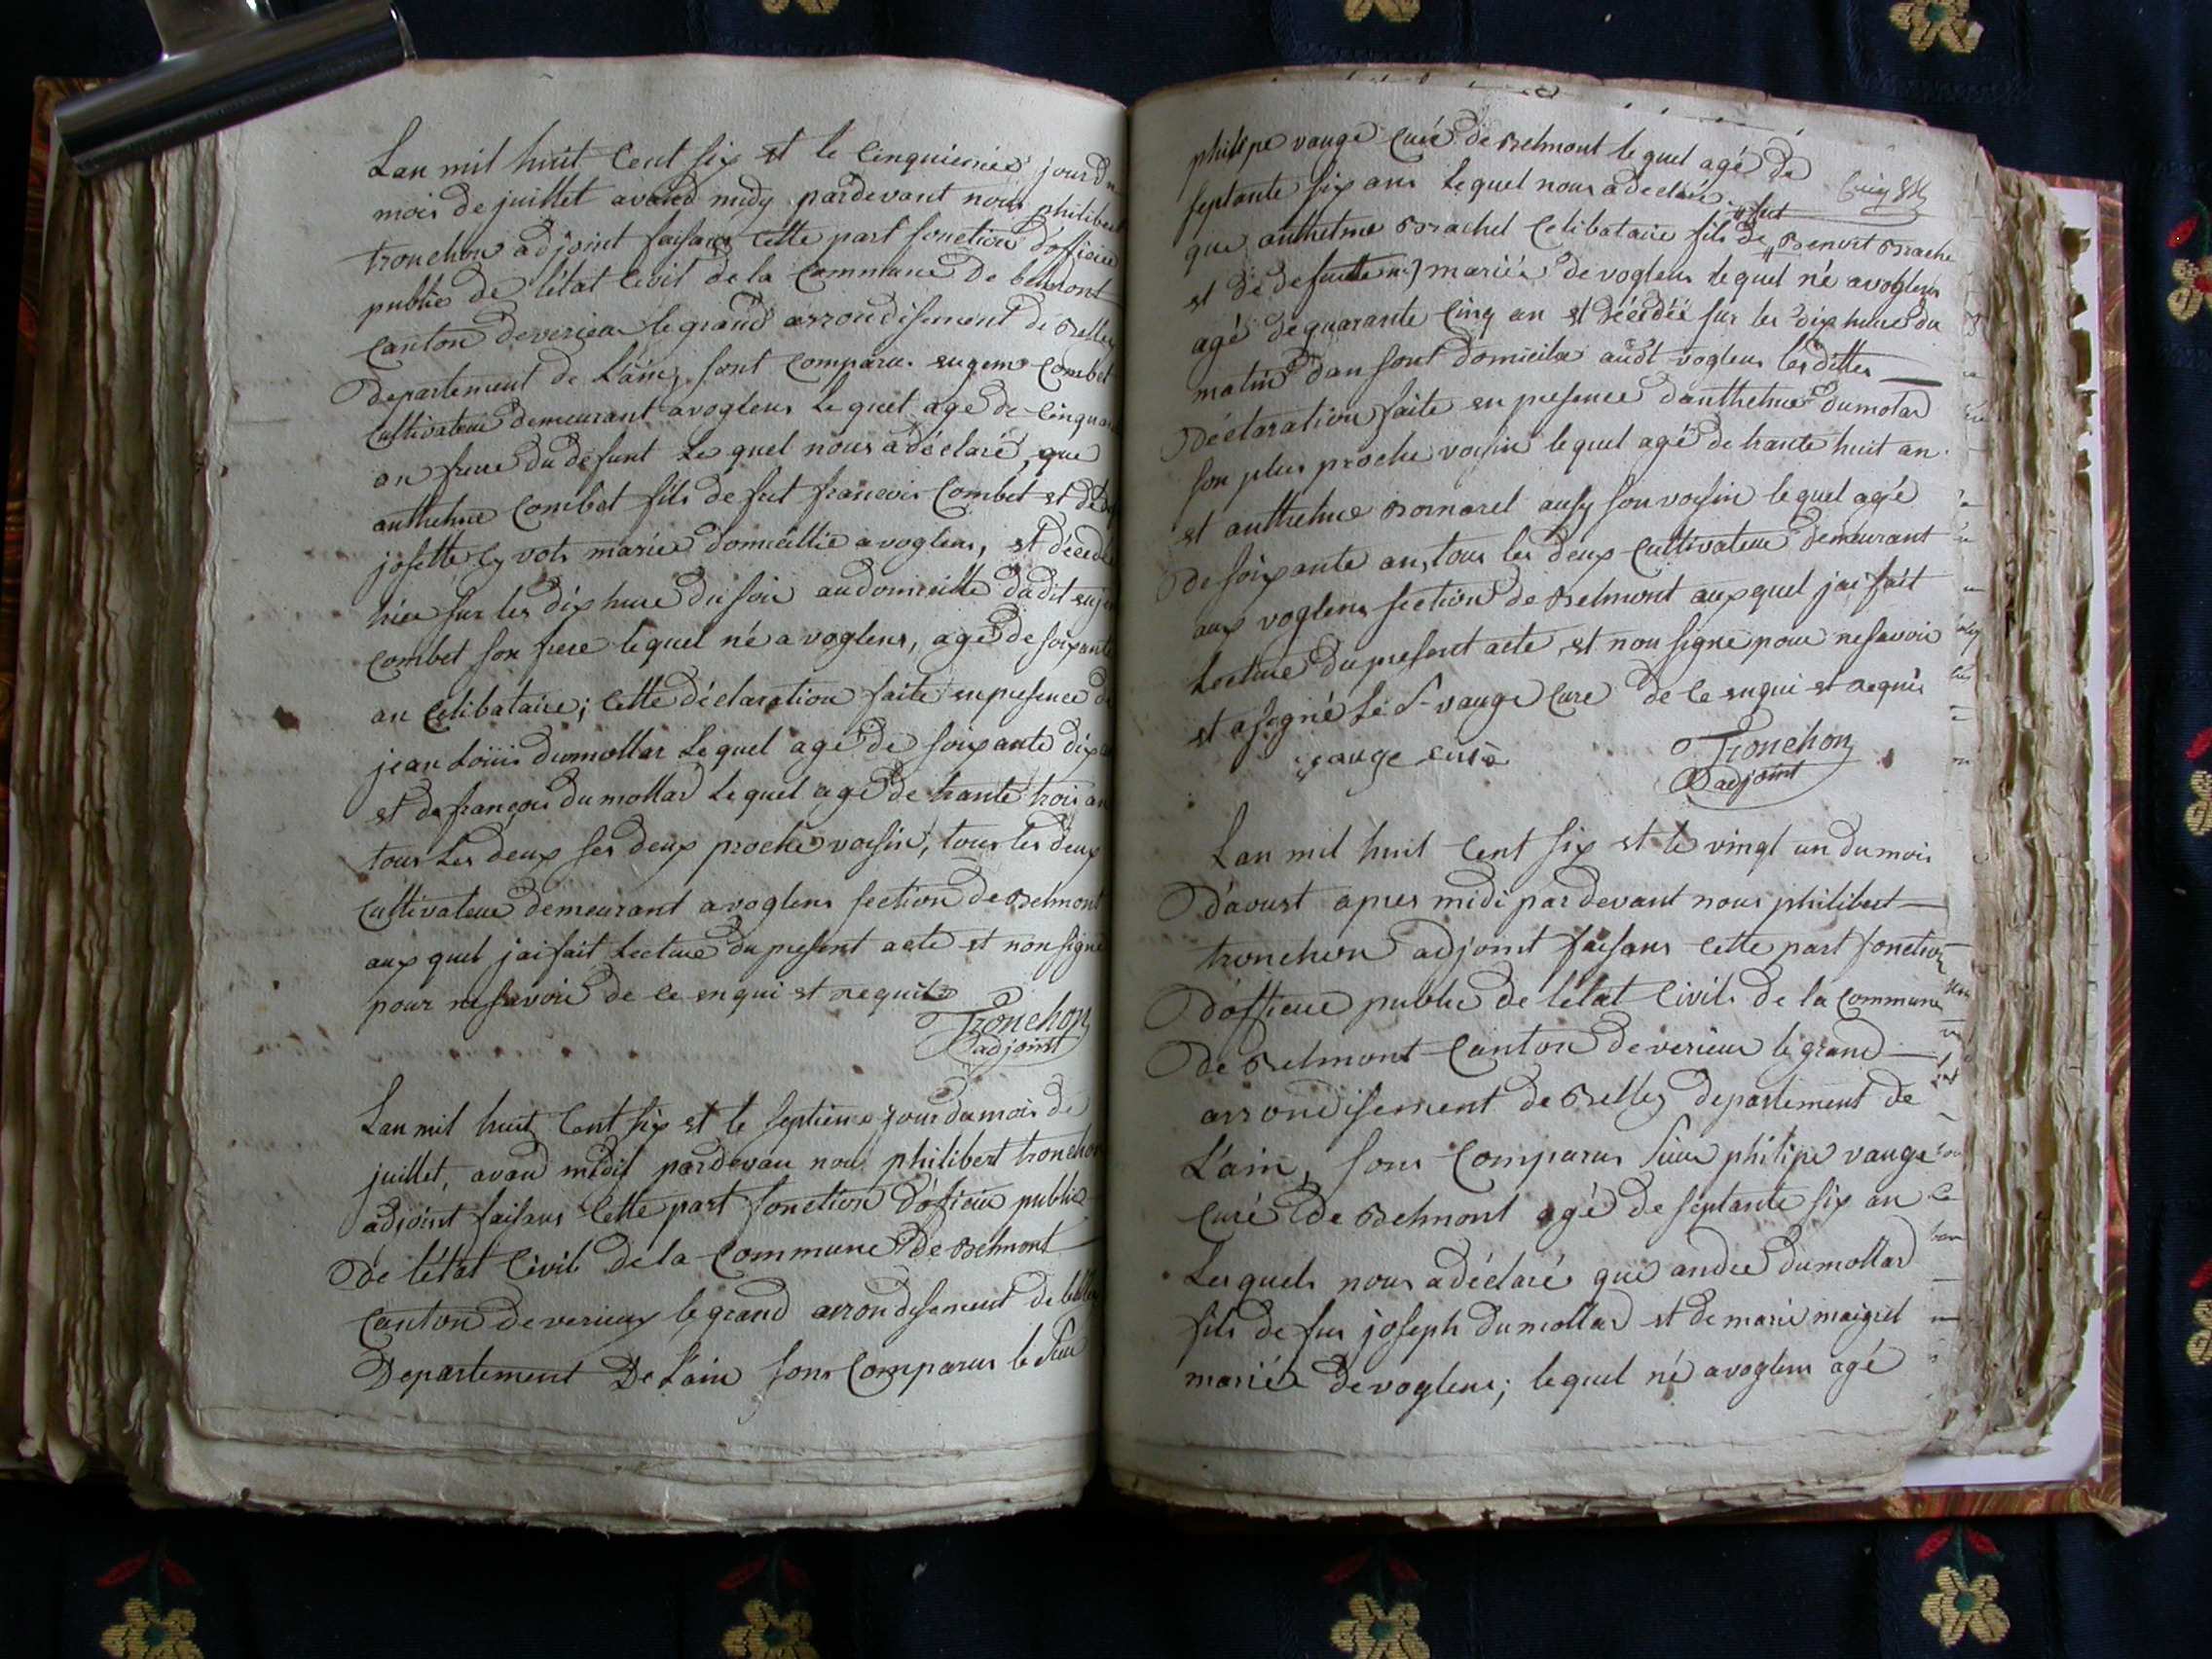 Lan mil huit Cent six et le Cinquieme jour du
mois de juillet avand midy pardevant nous philibert
tronchon adjoint faisans Cette part fonction d'officier
public de l'état Civil de la Commune de belmont
Canton deverieu le grand arrondisement de Belley
Departement de L'ain, sont comparu eugene Combet
Cultivateur demeurant avoglens Le quel agé de Cinquante
an frere du défunt Le quel nous a déclaré, que
anthelme Combet fils de feut francois Combet et de
josette marier domicillié a voglens, et décedé
hier sur les dix heure du soir au domicille dudit eugene
combet son frere le quel né a voglens, agé de soixante
an Celibataire; Cette déclaration faite enpresence de
jean Loüis dumollar Le quel agé de soixante dix an
et de françois dumollard Le quel agé de trante trois an
tous Les deux ses deux proche voisin, tous les deux
Cultivateur demeurant a voglens section de Belmont
aux quel jai fait Lecture du present acte et non signé
pour nesavoir de Ce enqui et requis
Tronchon
adjoint
Lan mil huit Cent six et le septieme jour du mois de
juillet, avand midi pardevan nous philibert tronchon
adjoint faisans Cette part fonction d'oficier public
De l'état Civil de la Commune de Belmont
Canton de verieux le grand arrondisement de belley
Departement De L'ain sont Comparus le sieur
philipe vauge Curé de Belmont le quel agé de
septante six ans Le quel nous a declaré
que anthelme Brachet Celibataire fils de feut Benoit Brachet
et de defunte mariés de voglens le quel né a voglens
agé de quarante Cinq an et décédée sur les dix heure du
matin dan sont domicile audt voglens les dittes
Déclaration faite en presence d'anthelme dumolar
son plus proche voisin le quel agé de trante huit an
et anthelme Bornarel ausy son voisin le quel agé
de soixante an, tous les deux Cultivateur demeurant
aux voglens section de Belmont aux quel jai fait
Lecture du present acte, et non signé pour nesavoir
et a signé Le Sr vauge Curé de Ce enqui et requis
vauge curé
Tronchon
adjoint
Lan mil huit Cent six et le vingt un du mois
D'avust apres midi pardevant nous philibert
tronchon adjoint faisans Cette part fonction
D'officier public de l'état Civil de la Commune
De Belmont Canton de verieu le grand
arrondisement de Belley departement de
L'ain, sons Comparus sieur philipe vauge
Curé de Belmont agé de septante six an
Lesquels nous a déclaré que andré dumollard
fils de feu joseph dumollar et de marie maigret
mariés devoglens; le quel né a voglens agé